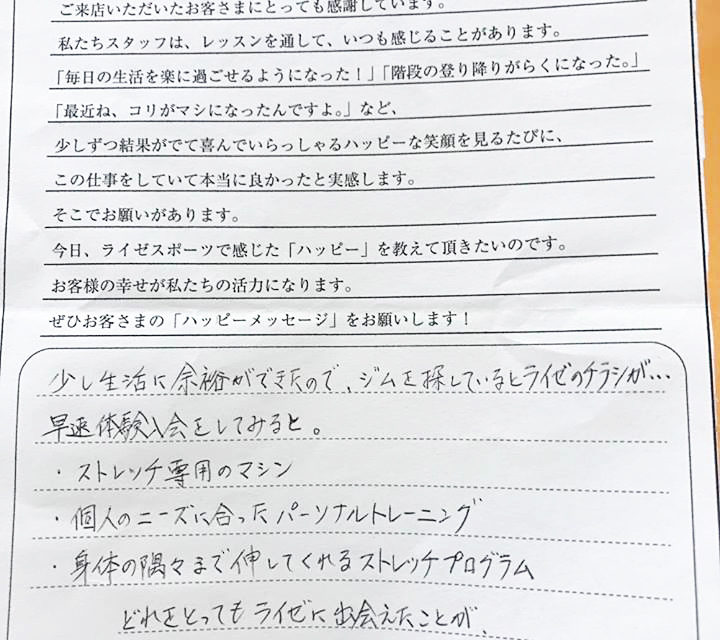 ご来店いただいたお客さまにとっても感謝しています。
私たちスタッフは、レッスンを通して、いつも感じることがあります。
「毎日の生活を楽に過ごせるようになった！」「階段の登り降りがらくになった。」
「最近ね、コリがマシになったんですよ。」など、
少しずつ結果がでて喜んでいらっしゃるハッピーな笑顔を見るたびに、
この仕事をしていて本当に良かったと実感します。
そこでお願いがあります。
今日、ライゼスポーツで感じた「ハッピー」を教えて頂きたいのです。
お客様の幸せが私たちの活力になります。
ぜひお客さまの「ハッピーメッセージ」をお願いします！
少し生活に余裕ができたので、ジムを探しているとライゼのチラシが…
早速体験入会をしてみると。
・ストレッチ専用のマシン
・個人のニーズに合ったパーソナルトレーニング
・身体の隅々まで伸してくれるストレッチプログラム
どれをとってもライゼに出会えたことが、